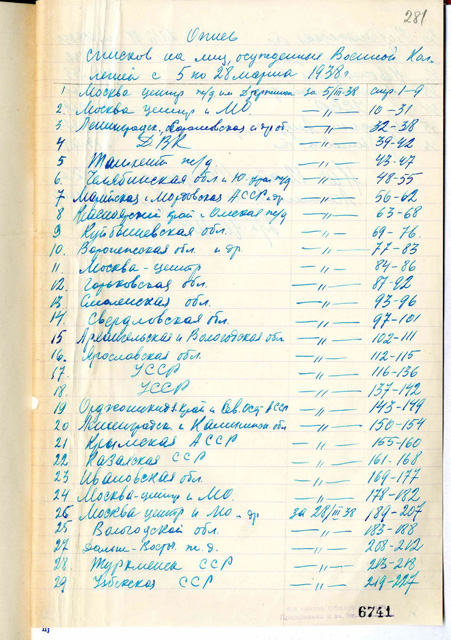 281
Опись
списков на лиц, осужденных Военной Кол-
легией с 5 по 28 марта 1938 г.
1. Москва центр ж/д им Дзержинск за 5/III-38 стр. 1-9
2. Москва центр и МО. —〃— 10-31
3 Ленинградск., и др об. —〃— 32-38
4 ДВК —〃— 39-42
5 Ташкент ж/д. —〃— 43-47
6. Челябинская обл. и Ю. Урал ж/д —〃— 48-55
7 Марийская и Мордовская АССР и др —〃— 56-62
8 Красноярский край и Омская ж/д —〃— 63-68
9 Куйбышевская обл. —〃— 69-76
10. Воронежская обл. и др. —〃— 77-83
11. Москва-центр —〃— 84-86
12. Горьковская обл. —〃— 87-92
13. Смоленская обл. —〃— 93-96
14 Свердловская обл. —〃— 97-101
15 Архангельская и Вологодская обл —〃— 102-111
16. Ярославская обл. —〃— 112-115
17. УССР —〃— 116-136
18. УССР —〃— 137-142
19 Орджоникидз. край и Сев. Ост. АССР —〃— 143-149
20 Ленинградск и Калининск об. —〃— 150-154
21 Крымская АССР —〃— 155-160
22 Казахская ССР —〃— 161-168
23 Ивановская обл. —〃— 169-177
24 Москва-центр и МО. —〃— 178-182
26 Москва центр и МО и др за 28/III-38 189-207
25 Вологодской обл. —〃— 183-188
27 Дальне-Вост. ж.д. —〃— 208-212
28. Туркменск ССР —〃— 213-218
29 Узбекская ССР —〃— 219-227
6741